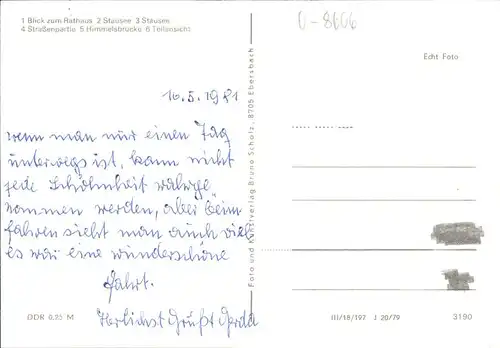 1 Blick zum Rathaus 2 Stausee 3 Stausee
4 Straßenpartie 5 Himmelsbrücke 6 Teilansicht
0-8606
Echt Foto
16.5.1981
wenn man nur einen Tag
unterwegs ist, kann nicht
jede Schönheit
nommen werden, aber beim
fahren sieht man auch viel
es war eine wunderschöne
fahrt.
Herlichst Grüßt Gerda
Foto und Kunstverlag Bruno Scholz, 8705 Ebersbach
DDR 0,25 M
III/18/197 J 20/79
3190